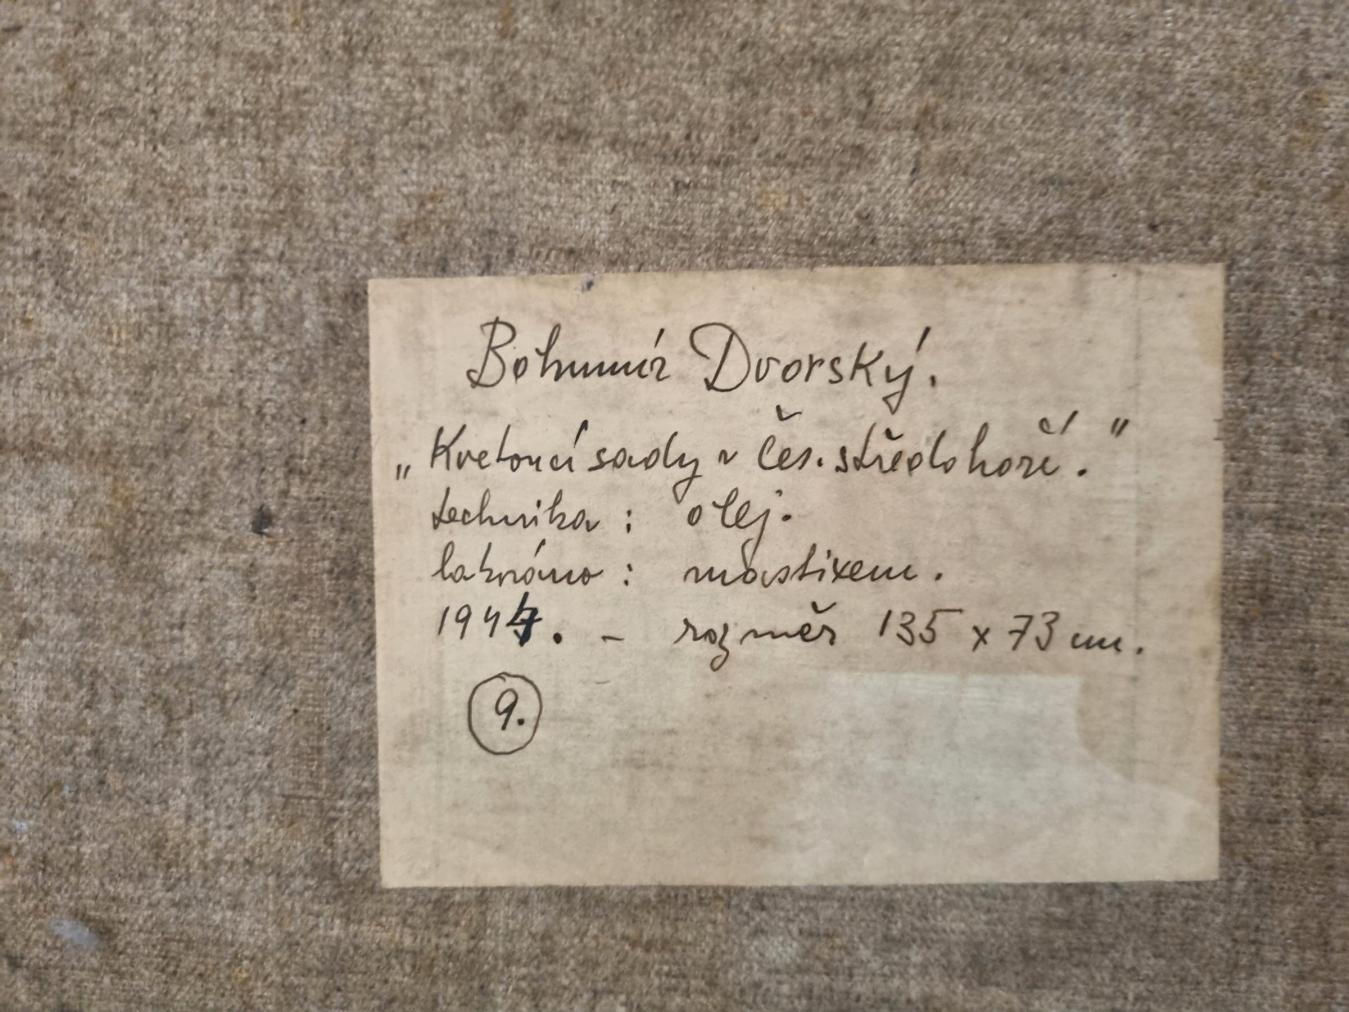 Bohumír Dvorský.
„Kvetoucí sady v Čes. středohoří."
technika : olej.
lakováno : mastixem.
1947. - rozměr 135 x 73 cm.
9.